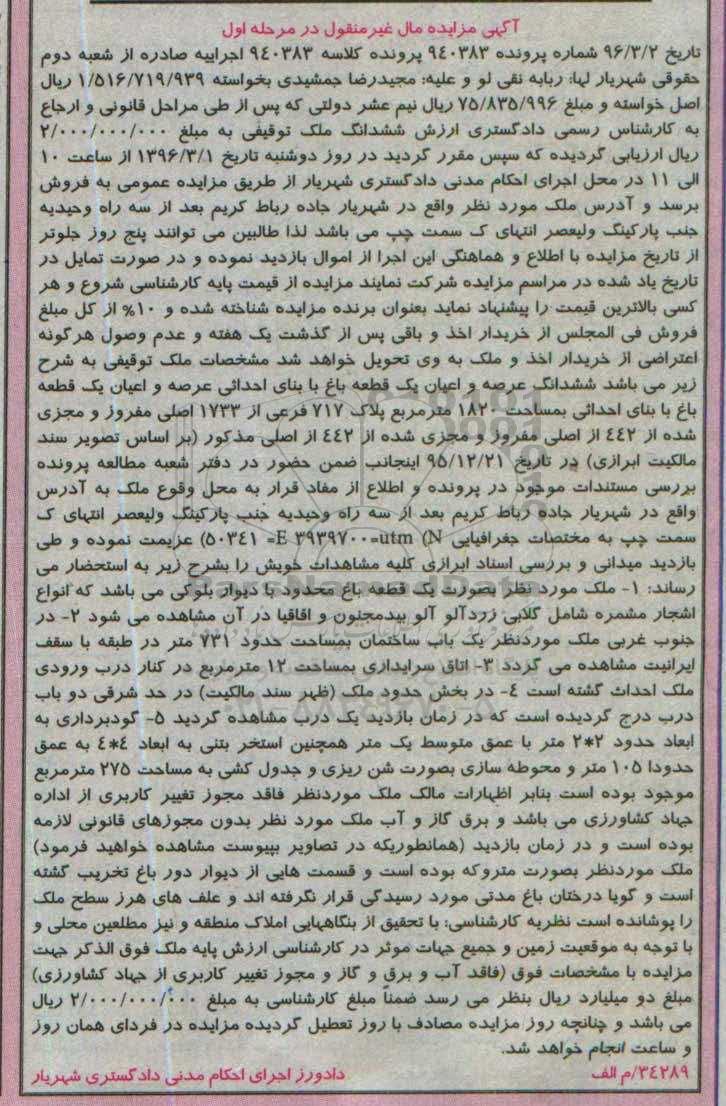 آگهی مزایده مال غیرمنقول در مرحله اول
تاریخ ۹۶/۳/۲ شماره پرونده ۹٤۰۳۸۳ پرونده کلاسه ۹٤۰۳۸۳ اجراییه صادره از شعبه دوم
حقوقی شهریار لها: ربابه نقی لو و علیه: مجیدرضا جمشیدی بخواسته ۱/۵۱۶/۷۱۹/۹۳۹ ریال
اصل خواسته و مبلغ ۷۵/۸۳۵/۹۹۶ ریال نیم عشر دولتی که پس از طی مراحل قانونی و ارجاع
به کارشناس رسمی دادگستری ارزش ششدانگ ملک توقیفی به مبلغ ۲/۰۰۰/۰۰۰/۰۰۰
ریال ارزیابی گردیده که سپس مقرر گردید در روز دوشنبه تاریخ ۱۳۹۶/۳/۱ از ساعت ۱۰
الی ۱۱ در محل اجرای احکام مدنی دادگستری شهریار از طریق مزایده عمومی به فروش
برسد و آدرس ملک مورد نظر واقع در شهریار جاده رباط کریم بعد از سه راه وحیدیه
جنب پارکینگ ولیعصر انتهای ک سمت چپ می باشد لذا طالبین می توانند پنج روز جلوتر
از تاریخ مزایده با اطلاع و هماهنگی این اجرا از اموال بازدید نموده و در صورت تمایل در
تاریخ یاد شده در مراسم مزایده شرکت نمایند مزایده از قیمت پایه کارشناسی شروع و هر
کسی بالاترین قیمت را پیشنهاد نماید بعنوان برنده مزایده شناخته شده و ۱۰% از کل مبلغ
فروش فی المجلس از خریدار اخذ و باقی پس از گذشت یک هفته و عدم وصول هرگونه
اعتراضی از خریدار اخذ و ملک به وی تحویل خواهد شد مشخصات ملک توقیفی به شرح
زیر می باشد ششدانگ عرصه و اعیان یک قطعه باغ با بنای احداثی عرصه و اعیان یک قطعه
باغ با بنای احداثی بمساحت ۱۸۲۰ مترمربع پلاک ۷۱۷ فرعی از ۱۷۳۳ اصلی مفروز و مجزی
شده از ٤٤۲ از اصلی مفروز و مجزی شده از ٤٤۲ از اصلی مذکور (بر اساس تصویر سند
مالکیت ابرازی) در تاریخ ۹۵/۱۲/۲۱ اینجانب ضمن حضور در دفتر شعبه مطالعه پرونده
بررسی مستندات موجود در پرونده و اطلاع از مفاد قرار به محل وقوع ملک به آدرس
واقع در شهریار جاده رباط کریم بعد از سه راه وحیدیه جنب پارکینگ ولیعصر انتهای ک
سمت چپ به مختصات جغرافیایی utm (N=۳۹۳۹۷۰۰ E= ۵۰۳٤۱) عزیمت نموده و طی
بازدید میدانی و بررسی اسناد ابرازی کلیه مشاهدات خویش را بشرح زیر به استحضار می
رساند: ۱- ملک مورد نظر بصورت یک قطعه باغ محدود با دیوار بلوکی می باشد که انواع
اشجار مشمره شامل گلابی زردآلو آلو بیدمجنون و اقاقیا در آن مشاهده می شود ۲- در
جنوب غربی ملک موردنظر یک باب ساختمان بمساحت حدود ۷۳۱ متر در طبقه با سقف
ایرانیت مشاهده می گردد ۳- اتاق سرایداری بمساحت ۱۲ مترمربع در کنار درب ورودی
ملک احداث گشته است ٤- در بخش حدود ملک (ظهر سند مالکیت) در حد شرقی دو باب
درب درج گردیده است که در زمان بازدید یک درب مشاهده گردید ۵- گودبرداری به
ابعاد حدود ۲*۲ متر با عمق متوسط یک متر همچنین استخر بتنی به ابعاد ٤*٤ به عمق
حدودا ۱۰۵ متر و محوطه سازی بصورت شن ریزی و جدول کشی به مساحت ۲۷۵ مترمربع
موجود بوده است بنابر اظهارات مالک ملک موردنظر فاقد مجوز تغییر کاربری از اداره
جهاد کشاورزی می باشد و برق گاز و آب ملک مورد نظر بدون مجوزهای قانونی لازمه
بوده است و در زمان بازدید (همانطوریکه در تصاویر بپیوست مشاهده خواهید فرمود)
ملک موردنظر بصورت متروکه بوده است و قسمت هایی از دیوار دور باغ تخریب گشته
است و گویا درختان باغ مدتی مورد رسیدگی قرار نگرفته اند و علف های هرز سطح ملک
را پوشانده است نظریه کارشناسی: با تحقیق از بنگاههایی املاک منطقه و نیز مطلعین محلی و
با توجه به موقعیت زمین و جمیع جهات موثر در کارشناسی ارزش پایه ملک فوق الذکر جهت
مزایده با مشخصات فوق (فاقد آب و برق و گاز و مجوز تغییر کاربری از جهاد کشاورزی)
مبلغ دو میلیارد ریال بنظر می رسد ضمناً مبلغ کارشناسی به مبلغ ۲/۰۰۰/۰۰۰/۰۰۰ ریال
می باشد و چنانچه روز مزایده مصادف با روز تعطیل گردیده مزایده در فردای همان روز
و ساعت انجام خواهد شد.
۳٤۲۸۹/م الف دادورز اجرای احکام مدنی دادگستری شهریار